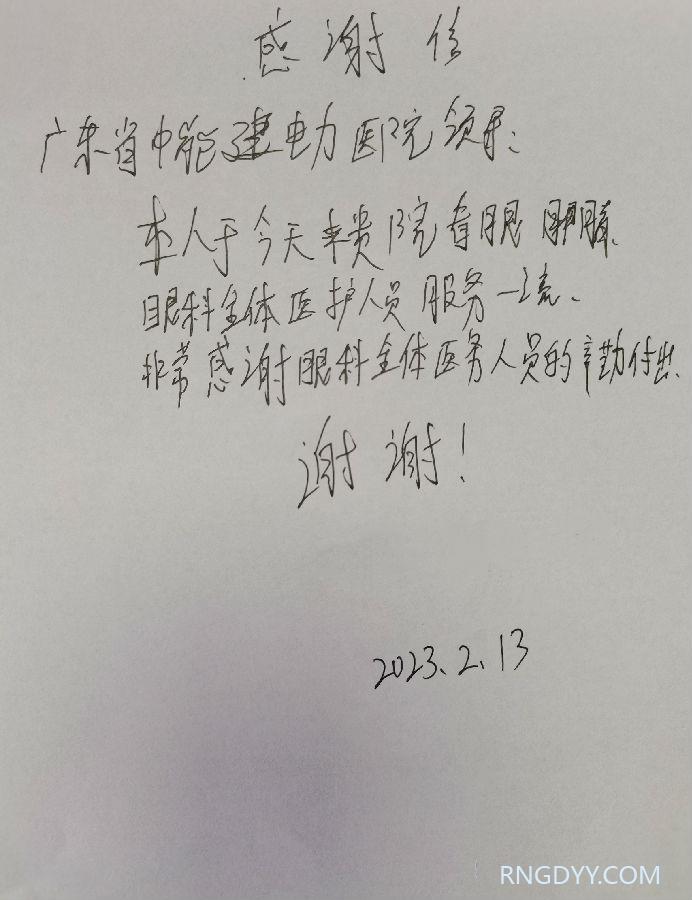 感谢信
广东省中能建电力医院领导:
本人于今天来贵院看眼
眼科全体医护人员服务一流、
非常感谢眼科全体医务人员的辛勤付出、
谢谢!
2023.2.13
RNGDYY.COM